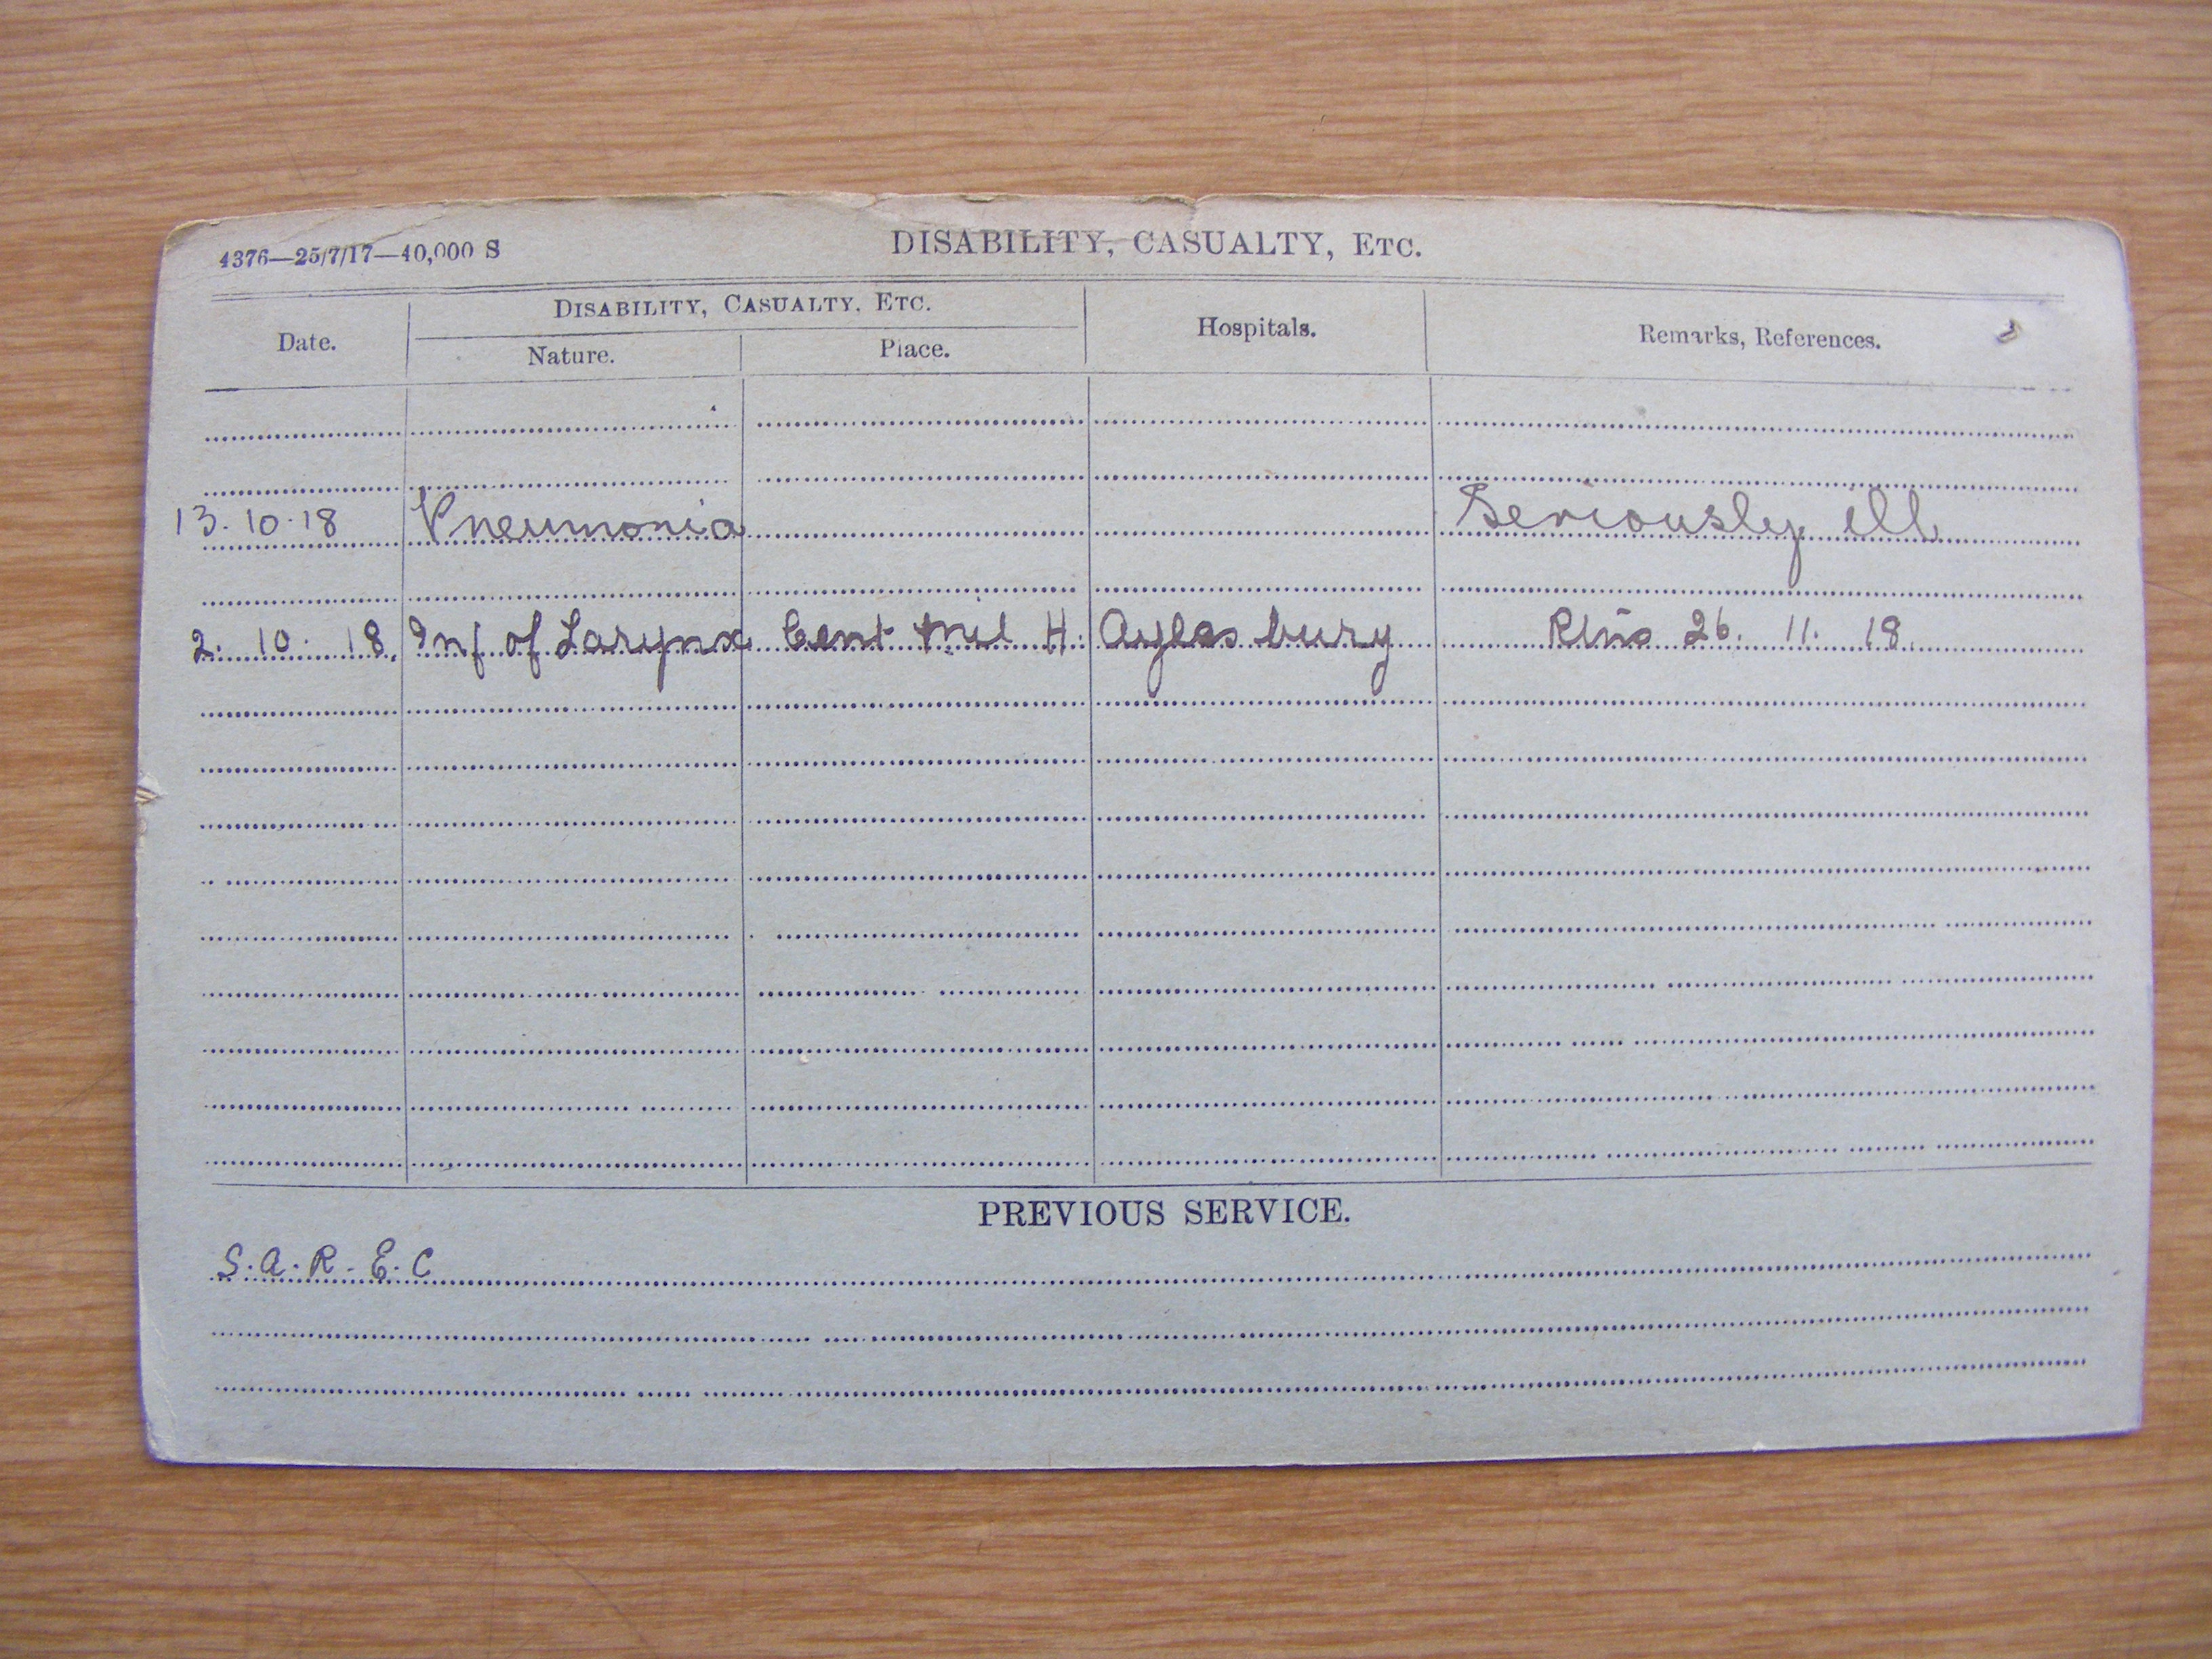 4376—25/7/17—40,000 S
DISABILITY, CASUALTY, ETC.
Date.
DISABILITY, CASUALTY, ETC.
Nature.
Place.
Hospitals.
Remarks, References.
13.10.18 Pneumonia Seriously ill
2. 10. 18. Inf of Larynx Cent Mil H. Aylesbury 26. 11. 18.
PREVIOUS SERVICE.
S.A.R.E.C